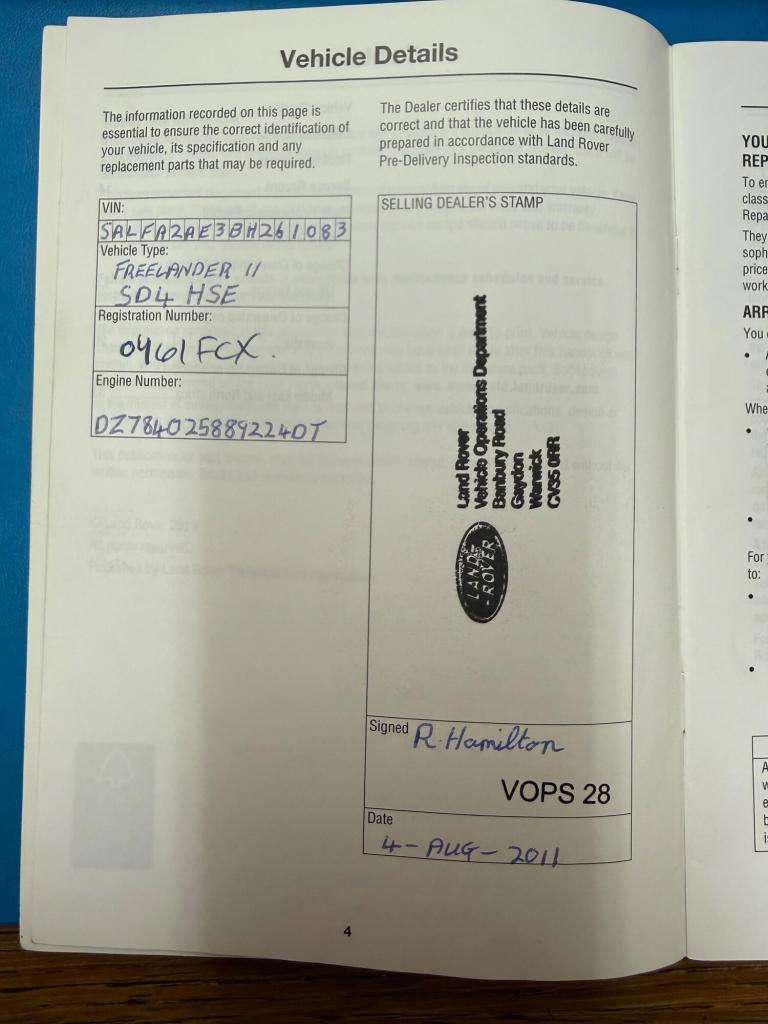 Vehicle Details
The information recorded on this page is
essential to ensure the correct identification of
your vehicle, its specification and any
replacement parts that may be required.
The Dealer certifies that these details are
correct and that the vehicle has been carefully
prepared in accordance with Land Rover
Pre-Delivery Inspection standards.
VIN:
SALFA2AE3BH261083
Vehicle Type:
FREELANDER II
SD4 HSE
Registration Number:
0461 FCX.
Engine Number:
DZ784025889224DT
SELLING DEALER'S STAMP
Land Rover
Vehicle Operations Department
Banbury Road
Gaydon
Warwick
CV35 0RR
LAND-
-ROVER
Signed R. Hamilton
VOPS 28
Date
4-AUG-2011
4
YOU
REP
To
class
Repa
They
soph
price
work
ARR
You
Whe
For
to: